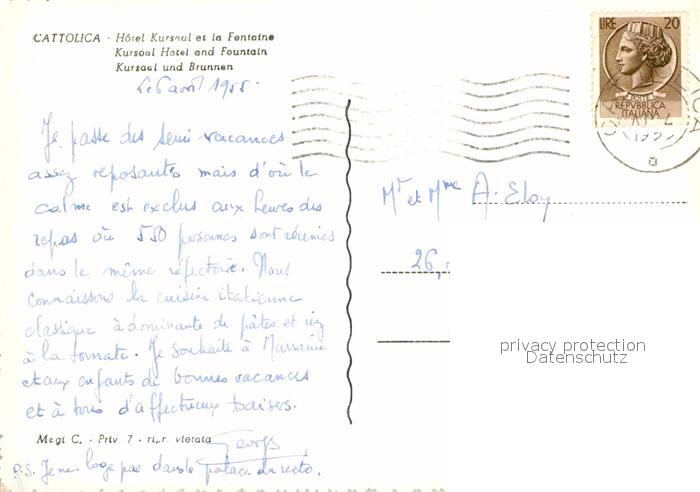 CATTOLICA - Hôtel Kursaal et la Fontaine
Kursaal Hotel and Fountain
Kursaal und Brunnen
Le 6 avril 1955.
Je passe des semi vacances
assez reposantes mais d'où le
calme est exclus aux heures des
repas où 550 personnes sont réunies
dans le même réfectoire. Nous
connaissons la cuisine italienne
classique à dominante de pâtes et riz
à la tomate. Je souhaite à Marraine
et aux enfants de bonnes vacances
et à tous d'affectueux baisers.
Megi C. - Priv. 7 - ripr. vietata
Georges
P.S. Je ne loge pas dans le palace du recto.
LIRE 20
POSTE
REPVBBLICA
ITALIANA
Mr et Mme A. Eloy
26,
privacy protection
Datenschutz